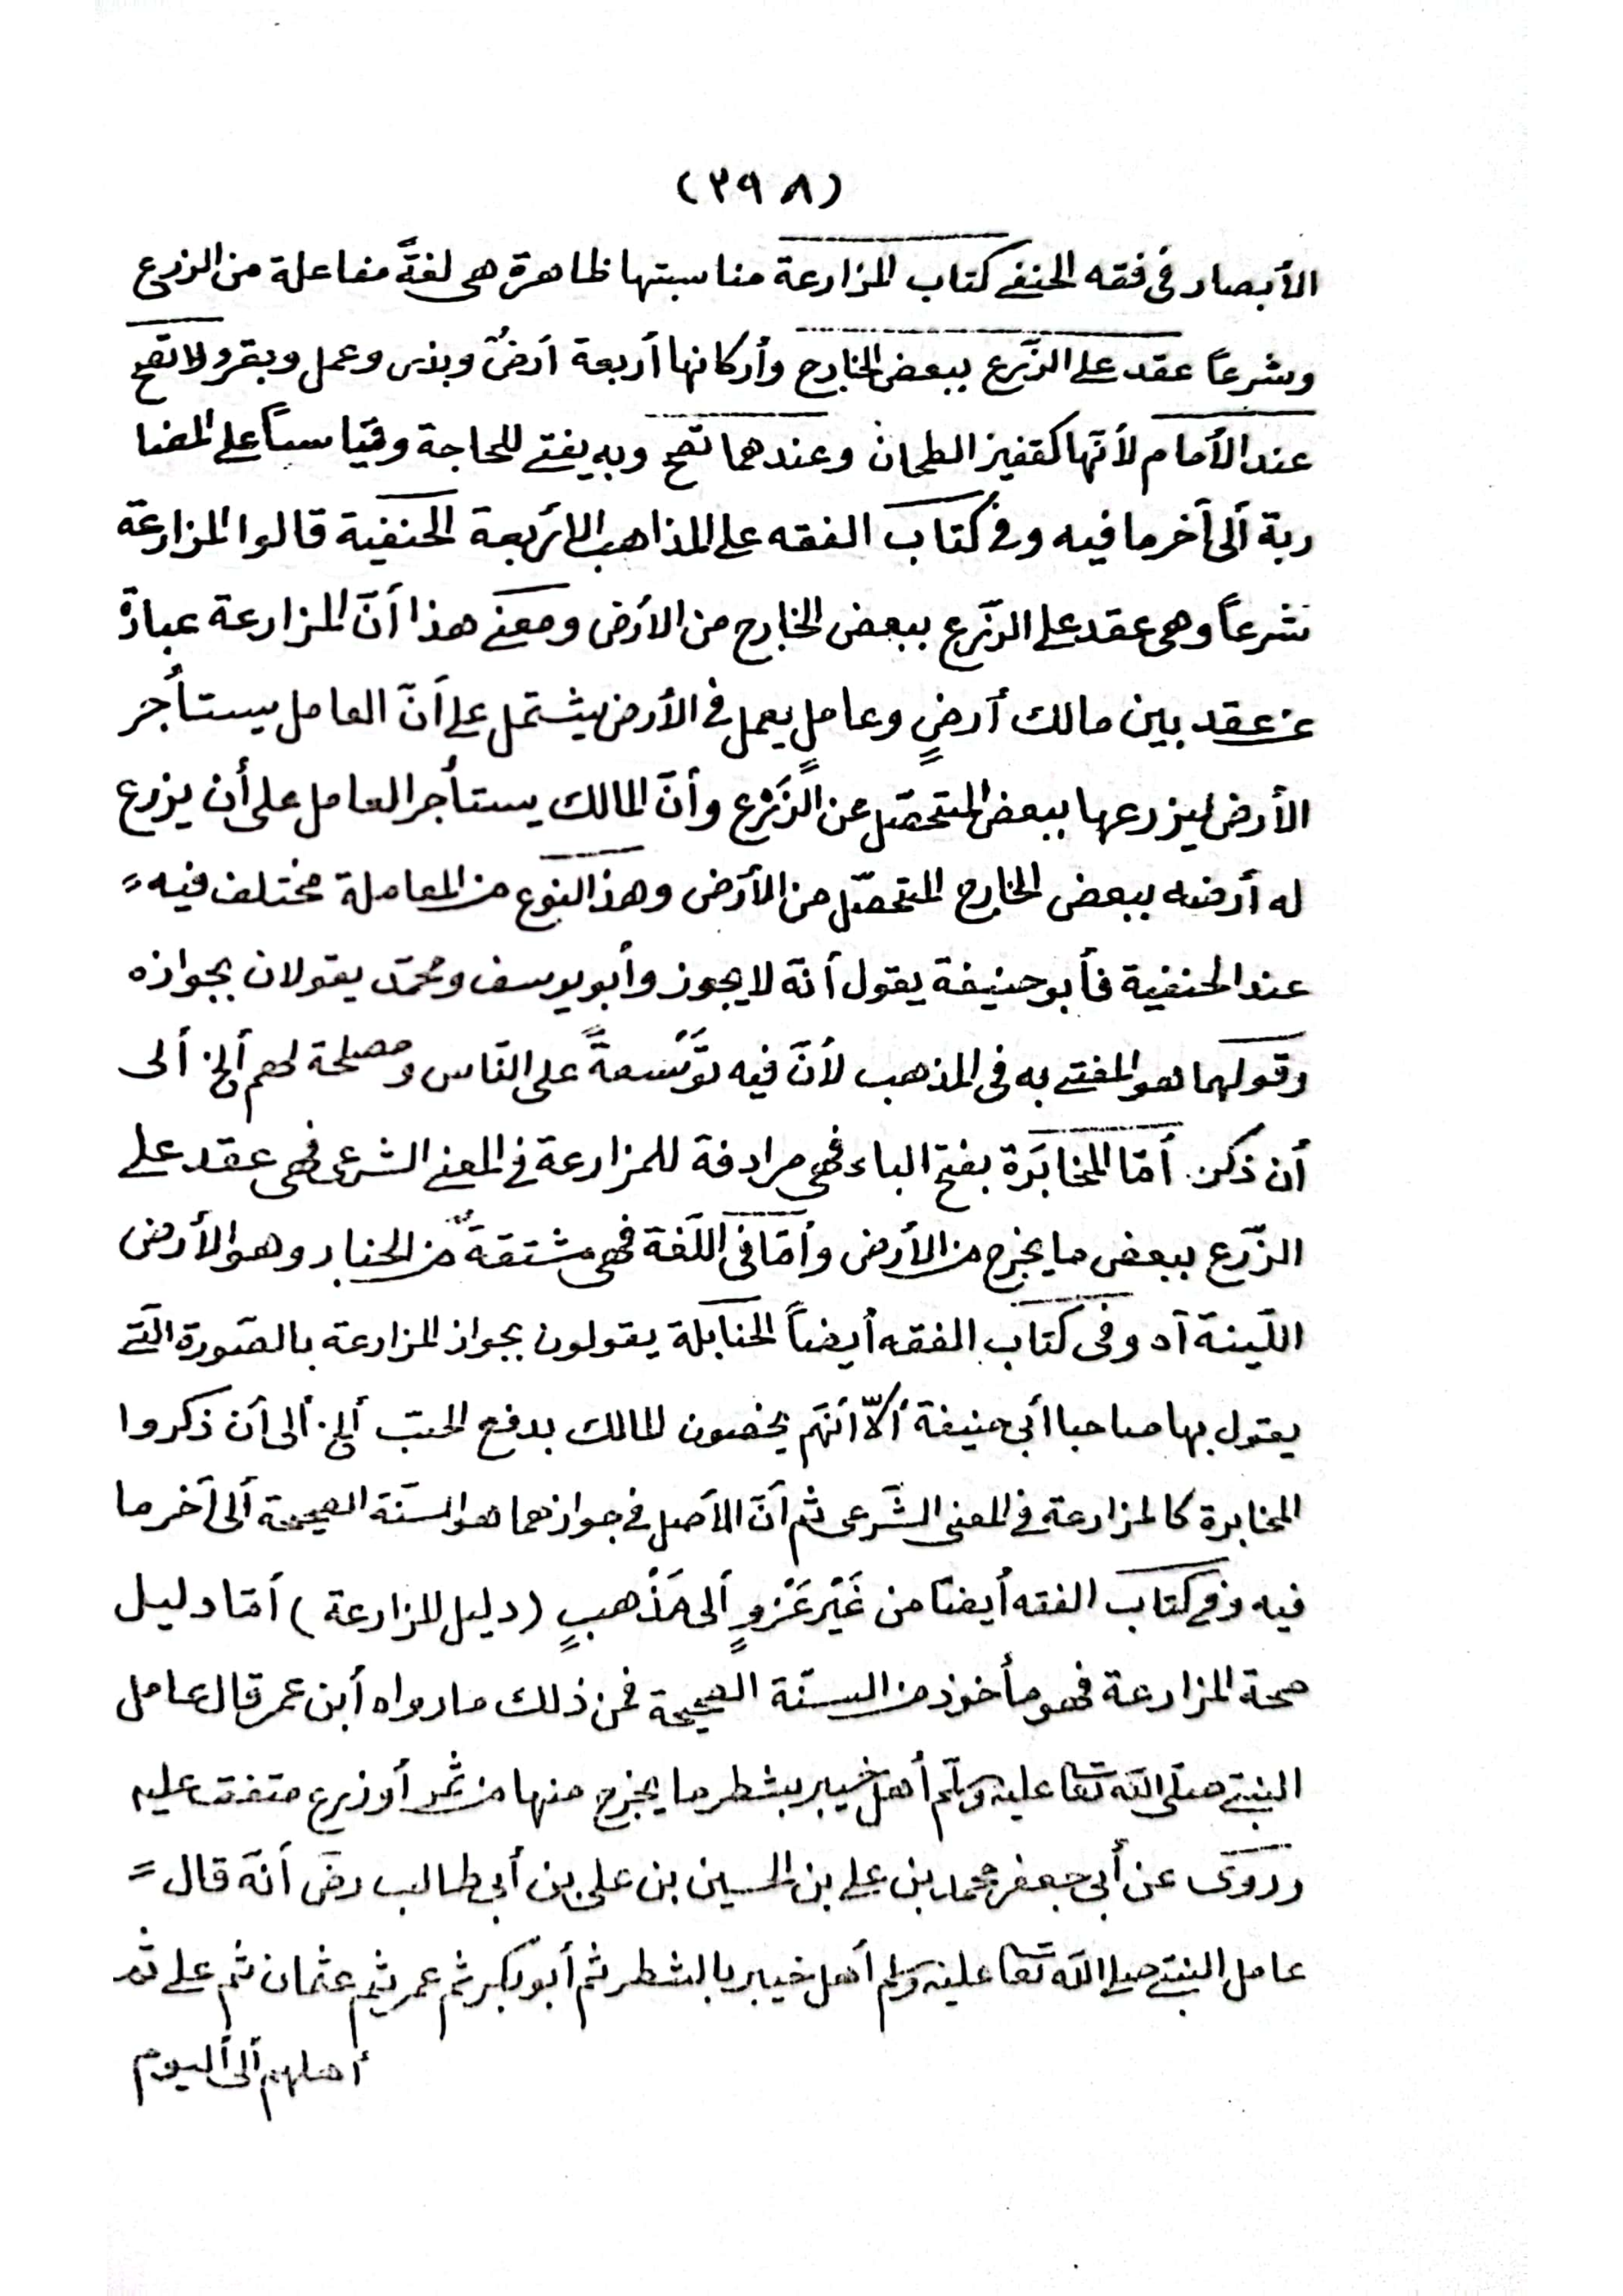 (٣٩٨)
الأبصار فى فقه الحنفے كتاب المزارعة مناسبتها ظاهرة هى لغةً مفاعلة من الزرع
وشرعاً عقد على الزّرع ببعض الخارج وأركانها أربعة أرضٌ وبذر وعمل وبقر ولا تصح
عند الأمام لأنّها كقفيز الطحان وعندهما تصح وبه يفتے للحاجة وقياساً على المضا
ربة ألى أخر ما فيه وفى كتاب الفقه على المذاهب الأربعة الحنفية قالوا المزارعة
شرعاً وهى عقد على الزّرع ببعض الخارج من الأرض ومعنے هذا أنّ المزارعة عبارة
عن عقد بين مالك أرضٍ وعاملٍ يعمل فى الأرض يشتمل على أنّ العامل يستأجر
الأرض ليزرعها ببعض المتحصّل من الزّرْع وأنّ المالك يستأجر العامل على أن يزرع
له أرضه ببعض الخارج المتحصّل من الأرض وهذا النوع من المعاملة مختلف فيه
عند الحنفية فأبو حنيفة يقول أنّه لا يجوز وأبو يوسف ومحمّد يقولان بجوازه
وقولهما هو المفتے به فى المذهب لأنّ فيه توْسعةً على النّاس ومصلحة لهم ألخ ألى
أن ذكر أمّا المخابَرة بفتح الباء فهى مرادفة للمزارعة فى المعنے الشرعى فهى عقد على
الزّرع ببعض ما يخرج من الأرض وأمّا فى اللّغة فهى مشتقةٌ من الخبار وهو الأرض
اللّينة أه وفى كتاب الفقه أيضاً الحنابلة يقولون بجواز المزارعة بالصّورة الّتے
يقول بها صاحبا أبى حنيفة ألاّ أنّهم يخصون المالك بدفع الحبّ ألخ ألى أن ذكروا
المخابرة كالمزارعة فى المعنى الشّرعى ثم أنّ الأصل فى جوازهما هو السنّة الصحيحة ألى آخر ما
فيه وفى كتاب الفقه أيضا من غَيْر عَزْوٍ ألى مَذْهبٍ (دليل المزارعة) أمّا دليل
صحة المزارعة فهو مأخوذ من السنّة الصحيحة فمن ذلك ما رواه أبن عمر قال عامل
النبىّ صلّى الله تعا عليه وسلّم أهل خيبر بشطر ما يخرج منها من ثمر أو زرع متفق عليه
وروى عن أبى جعفر محمد بن على بن الحسين بن على بن أبى طالب رضى أنّه قال
عامل النبىّ صلى الله تعا عليه وسلم أهل خيبر بالشطر ثم أبو بكر ثم عمر ثم عثمان ثم على ثم
أهلهم ألى أليوم